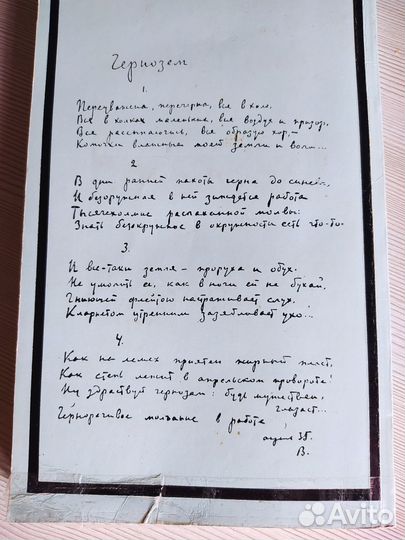 Чернозем
1.
Переуважена, перечерна, вся в холе,
Вся в холках маленьких, вся воздух и призор,
Вся рассыпаючись, вся образуя хор,—
Комочки влажные моей земли и воли...
2
В дни ранней пахоты черна до синевы,
И безоружная в ней зиждется работа
Тысячехолмие распаханной молвы:
Знать безокружное в окружности есть что-то.
3.
И все-таки земля — проруха и обух.
Не умолить ее, как в ноги ей не бухай:
Гниющей флейтою настраживает слух,
Кларнетом утренним зазябливает ухо...
4.
Как на лемех приятен жирный пласт,
Как степь лежит в апрельском провороте!
Ну здравствуй чернозем: будь мужествен,
глазаст...
Черноречивое молчание в работе
апрель 35.
В.
Avito